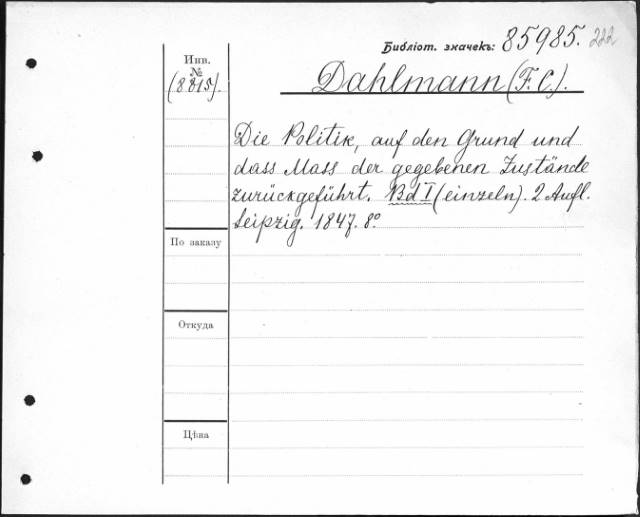 Библіот. значекъ: 85985. 222
Инв.
№
(8815).
Dahlmann (F. C.).
Die Politik, auf den Grund und
dass Mass der gegebenen Zustände
zurückgeführt. Bd I (einzeln). 2 Aufl.
Leipzig. 1847. 8º
По заказу
Откуда
Цѣна